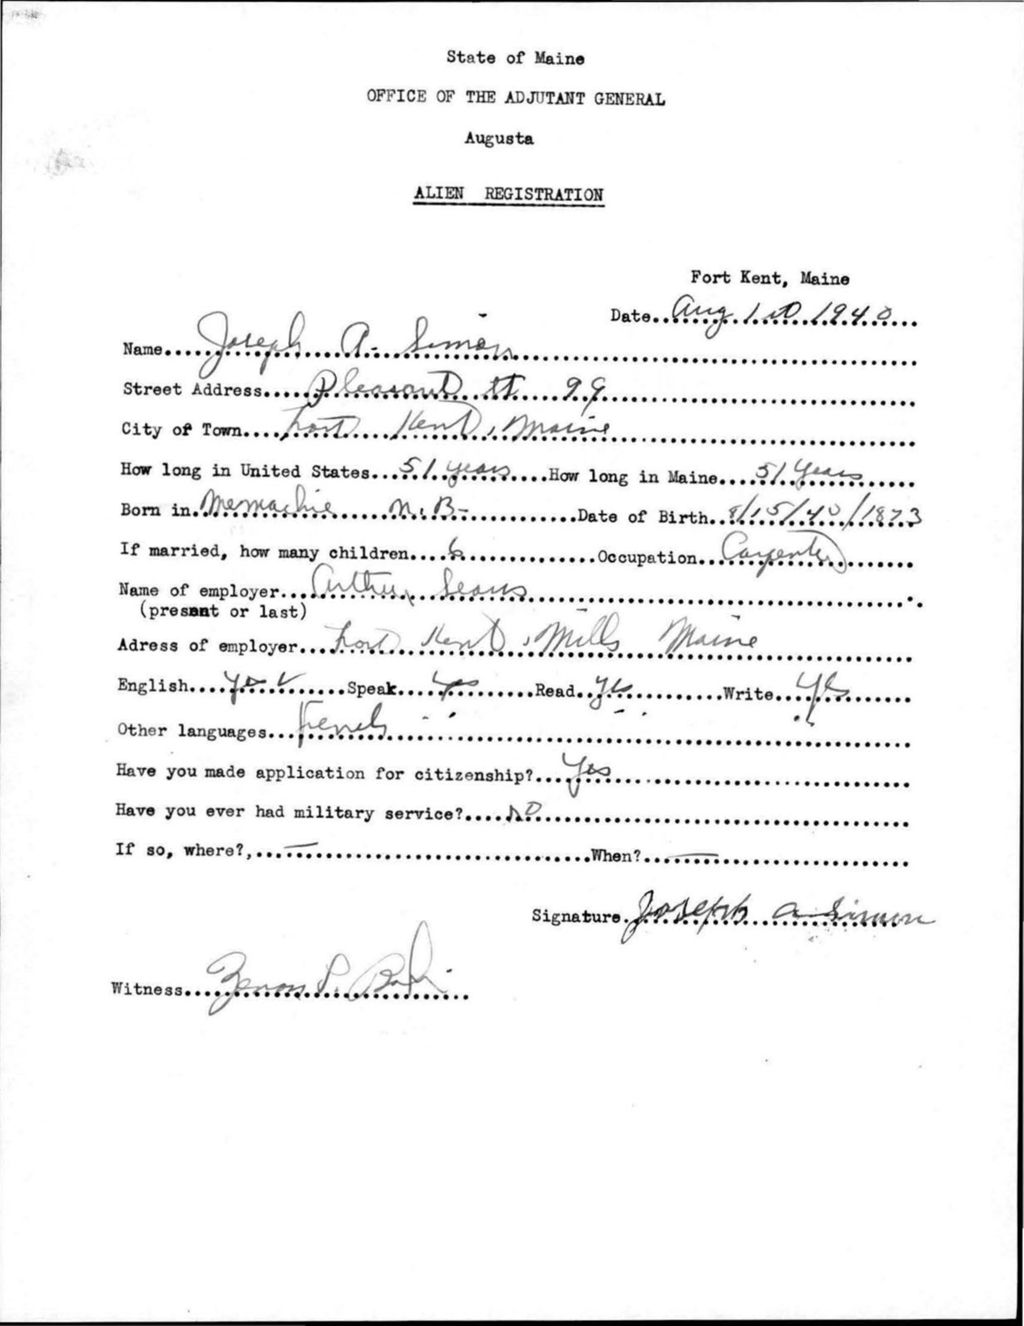 State of Maine
OFFICE OF THE ADJUTANT GENERAL
Augusta
ALIEN REGISTRATION
Fort Kent, Maine
Date..Aug 1st 1940...
Name.....Joseph A. Simon...
Street Address.....Pleasant st 99...
City of Town....Fort Kent, Maine...
How long in United States...51 years....How long in Maine....51 Years...
Born in.Memachie N.B-............Date of Birth..8/15/40/1873
If married, how many children....6..............Occupation...Carpenter...
Name of employer...Arthur...
(present or last)
Adress of employer...Fort Kent, Mills Maine...
English....yes.......Speak....yes........Read..yes..........Write...yes...
Other languages...French...
Have you made application for citizenship?...Yes...
Have you ever had military service?....NO...
If so, where?,...—...When?...—...
Signature.Joseph A Simon
Witness...